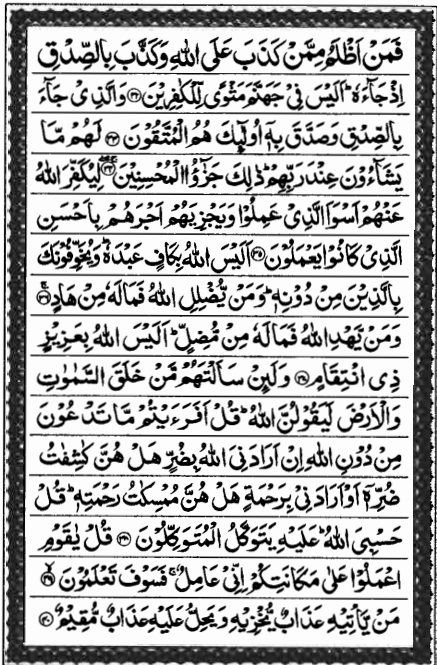 فَمَنْ اَظْلَمُ مِمَّنْ كَذَبَ عَلَى اللهِ وَكَذَّبَ بِالصِّدْقِ
اِذْ جَآءَهٗ ؕ اَلَيْسَ فِيْ جَهَنَّمَ مَثْوًى لِّلْكٰفِرِيْنَ ۝۳۲ وَالَّذِيْ جَآءَ
بِالصِّدْقِ وَصَدَّقَ بِهٖۤ اُولٰٓئِكَ هُمُ الْمُتَّقُوْنَ ۝۳۳ لَهُمْ مَّا
يَشَآءُوْنَ عِنْدَ رَبِّهِمْ ؕ ذٰلِكَ جَزٰٓؤُا الْمُحْسِنِيْنَ ۝۳۴ لِيُكَفِّرَ اللهُ
عَنْهُمْ اَسْوَاَ الَّذِيْ عَمِلُوْا وَيَجْزِيَهُمْ اَجْرَهُمْ بِاَحْسَنِ
الَّذِيْ كَانُوْا يَعْمَلُوْنَ ۝۳۵ اَلَيْسَ اللهُ بِكَافٍ عَبْدَهٗ ؕ وَيُخَوِّفُوْنَكَ
بِالَّذِيْنَ مِنْ دُوْنِهٖ ؕ وَمَنْ يُّضْلِلِ اللهُ فَمَالَهٗ مِنْ هَادٍ ۝۳۶
وَمَنْ يَّهْدِ اللهُ فَمَالَهٗ مِنْ مُّضِلٍّ ؕ اَلَيْسَ اللهُ بِعَزِيْزٍ
ذِي انْتِقَامٍ ۝۳۷ وَلَئِنْ سَاَلْتَهُمْ مَّنْ خَلَقَ السَّمٰوٰتِ
وَالْاَرْضَ لَيَقُوْلُنَّ اللهُ ؕ قُلْ اَفَرَءَيْتُمْ مَّا تَدْعُوْنَ
مِنْ دُوْنِ اللهِ اِنْ اَرَادَنِيَ اللهُ بِضُرٍّ هَلْ هُنَّ كٰشِفٰتُ
ضُرِّهٖۤ اَوْ اَرَادَنِيْ بِرَحْمَةٍ هَلْ هُنَّ مُمْسِكٰتُ رَحْمَتِهٖ ؕ قُلْ
حَسْبِيَ اللهُ ؕ عَلَيْهِ يَتَوَكَّلُ الْمُتَوَكِّلُوْنَ ۝۳۸ قُلْ يٰقَوْمِ
اعْمَلُوْا عَلٰى مَكَانَتِكُمْ اِنِّيْ عَامِلٌ ۚ فَسَوْفَ تَعْلَمُوْنَ ۝۳۹
مَنْ يَّاْتِيْهِ عَذَابٌ يُّخْزِيْهِ وَيَحِلُّ عَلَيْهِ عَذَابٌ مُّقِيْمٌ ۝۴۰